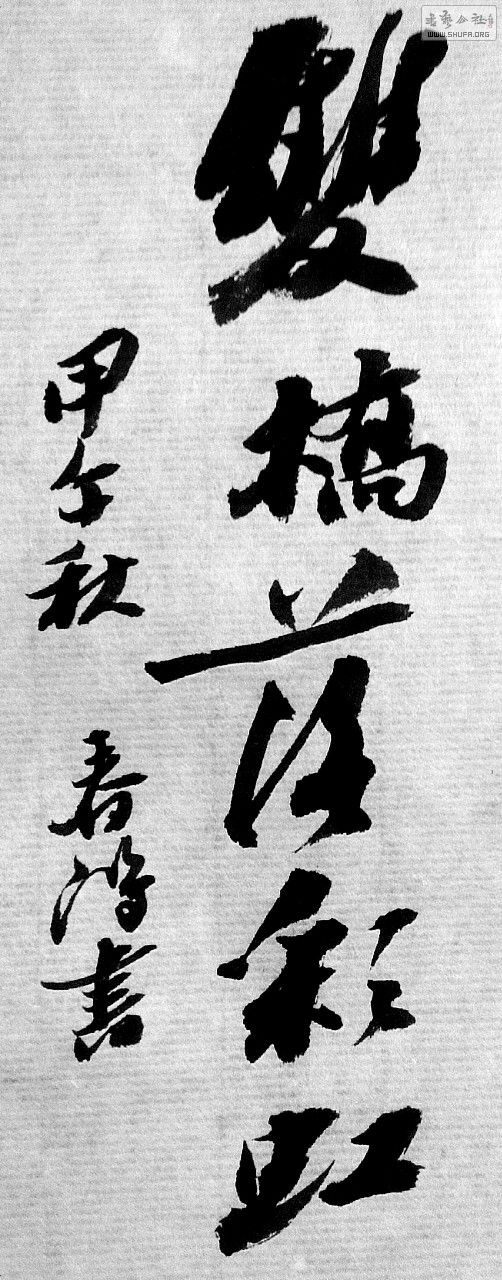 雙橋落彩虹
甲午秋 春鴻書
书艺公社
WWW.SHUFA.ORG